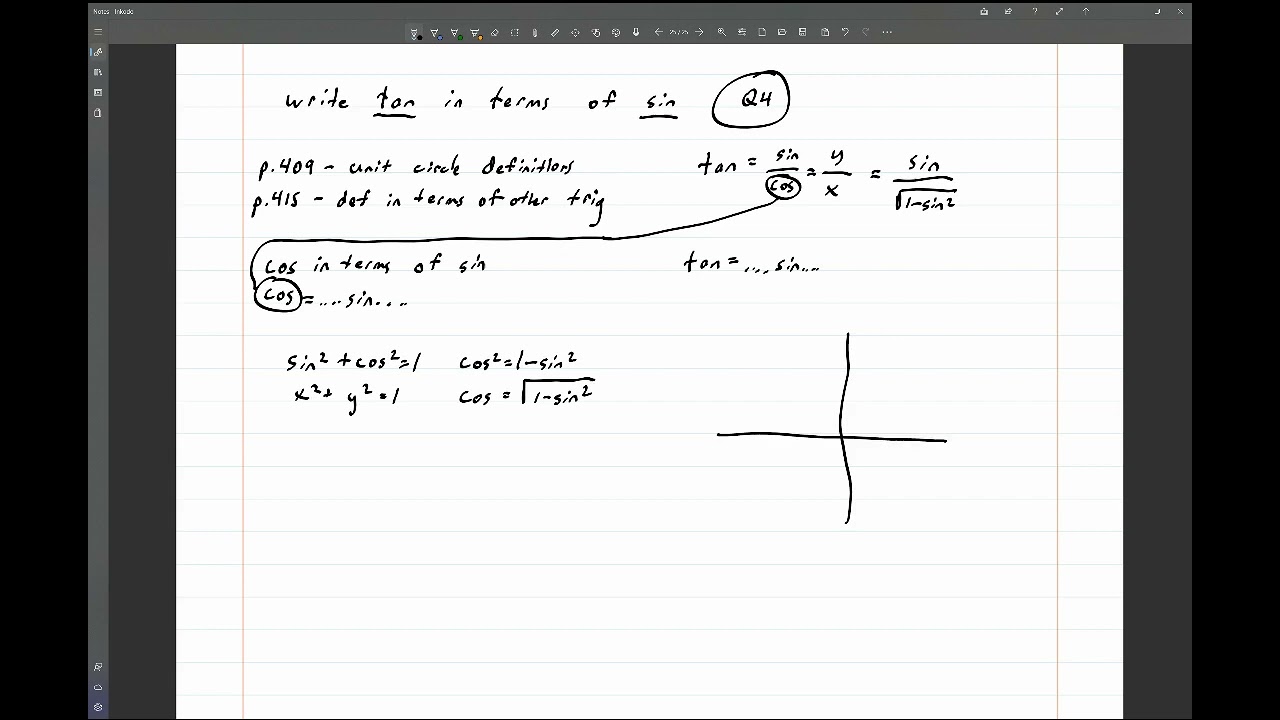 Notes - Inkodo
25/25
write tan in terms of sin Q4
p.409 - unit circle definitions
p.415 - def in terms of other trig
tan = sin/cos = y/x = sin/√1-sin²
cos in terms of sin
tan = .... sin...
cos = ... sin....
sin² + cos² = 1 cos² = 1-sin²
x² + y² = 1 cos = √1-sin²